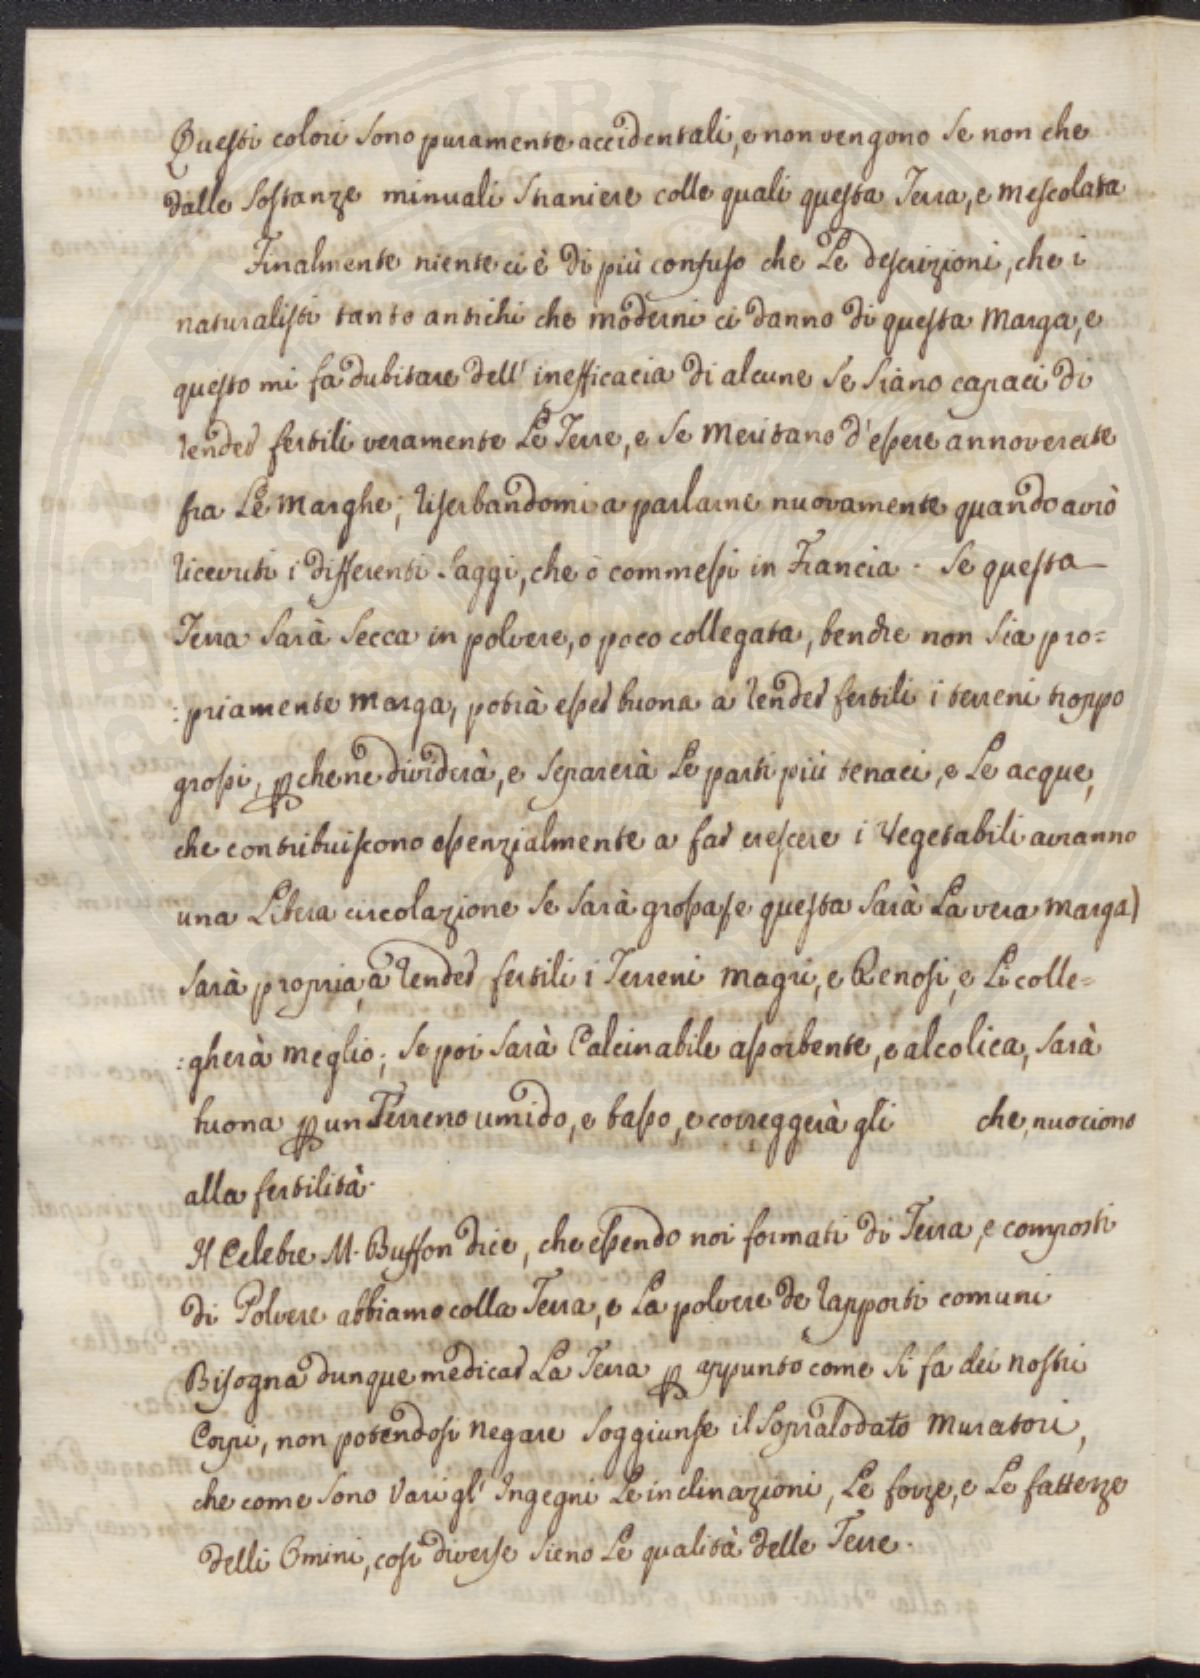 Questi colori sono puramente accidentali, e non vengono se non che
dalle sostanze minuali straniere colle quali questa Terra, e mescolata
Finalmente niente ci è di più confuso che Le descrizioni, che i
naturalisti tanto antichi che moderni ci danno di questa Marga, e
questo mi fa dubitare dell' inefficacia di alcune se siano capaci di
render fertili veramente Le Terre, e se meritano d'essere annoverate
fra Le Marghe; riserbandomi a parlarne nuovamente quando avrò
ricevuti i differenti saggi, che ò commessi in Francia. Se questa
Terra sarà secca in polvere, o poco collegata, benche non sia pro=
:priamente Marga, potrà esser buona a render fertili i terreni troppo
grossi, pche ne dividerà, e separerà Le parti più tenaci, e Le acque,
che contribuiscono essenzialmente a far crescere i Vegetabili avranno
una Libera circolazione se sarà grossa, (e questa sarà La vera Marga)
sarà propria, a render fertili i Terreni magri, e Renosi, e Li colle=
:gherà meglio; se poi sarà Calcinabile assorbente, e alcolica, sarà
buona p un Terreno umido, e basso, e correggerà gli che nuociono
alla fertilità.
Il Celebre M. Buffon dice, che essendo noi formati di Terra, e composti
di Polvere abbiamo colla Terra, e La polvere de rapporti comuni
Bisogna dunque medicar La Terra p appunto come si fa dei nostri
Corpi, non potendosi negare soggiunse il sopralodato Muratori,
che come sono Vari gl' Ingegni Le inclinazioni, Le forze, e Le fattezze
delli Omini, così diverse sieno Le qualità delle Terre.